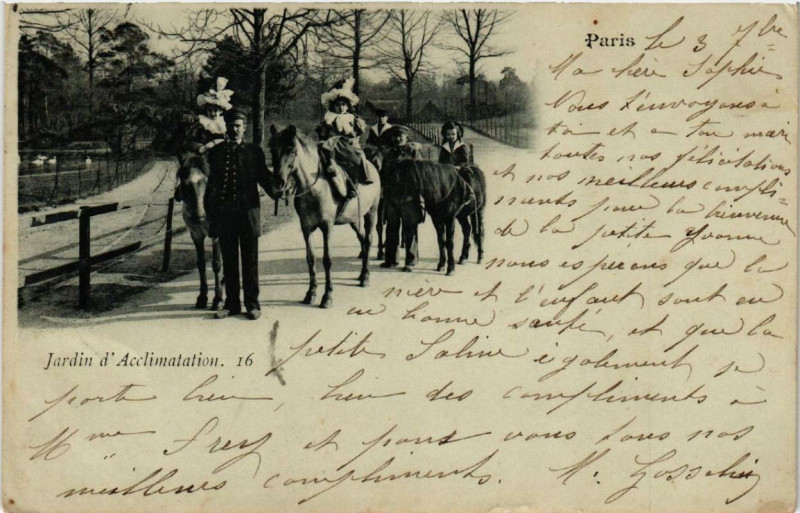 Paris le 3 7bre
Ma chère Sophie
Nous t'envoyons à
toi et a ton mari
toutes nos félicitations
et nos meilleurs compli=
ments pour la bienvenue
de la petite Yvonne
nous esperons que la
mère et l'enfant sont en
bonne santé, et que la
petite Saline également se
porte bien, bien des compliments à
Mme Frey et pour vous tous nos
meilleures compliments. M. Gosselin
Jardin d'Acclimatation. 16